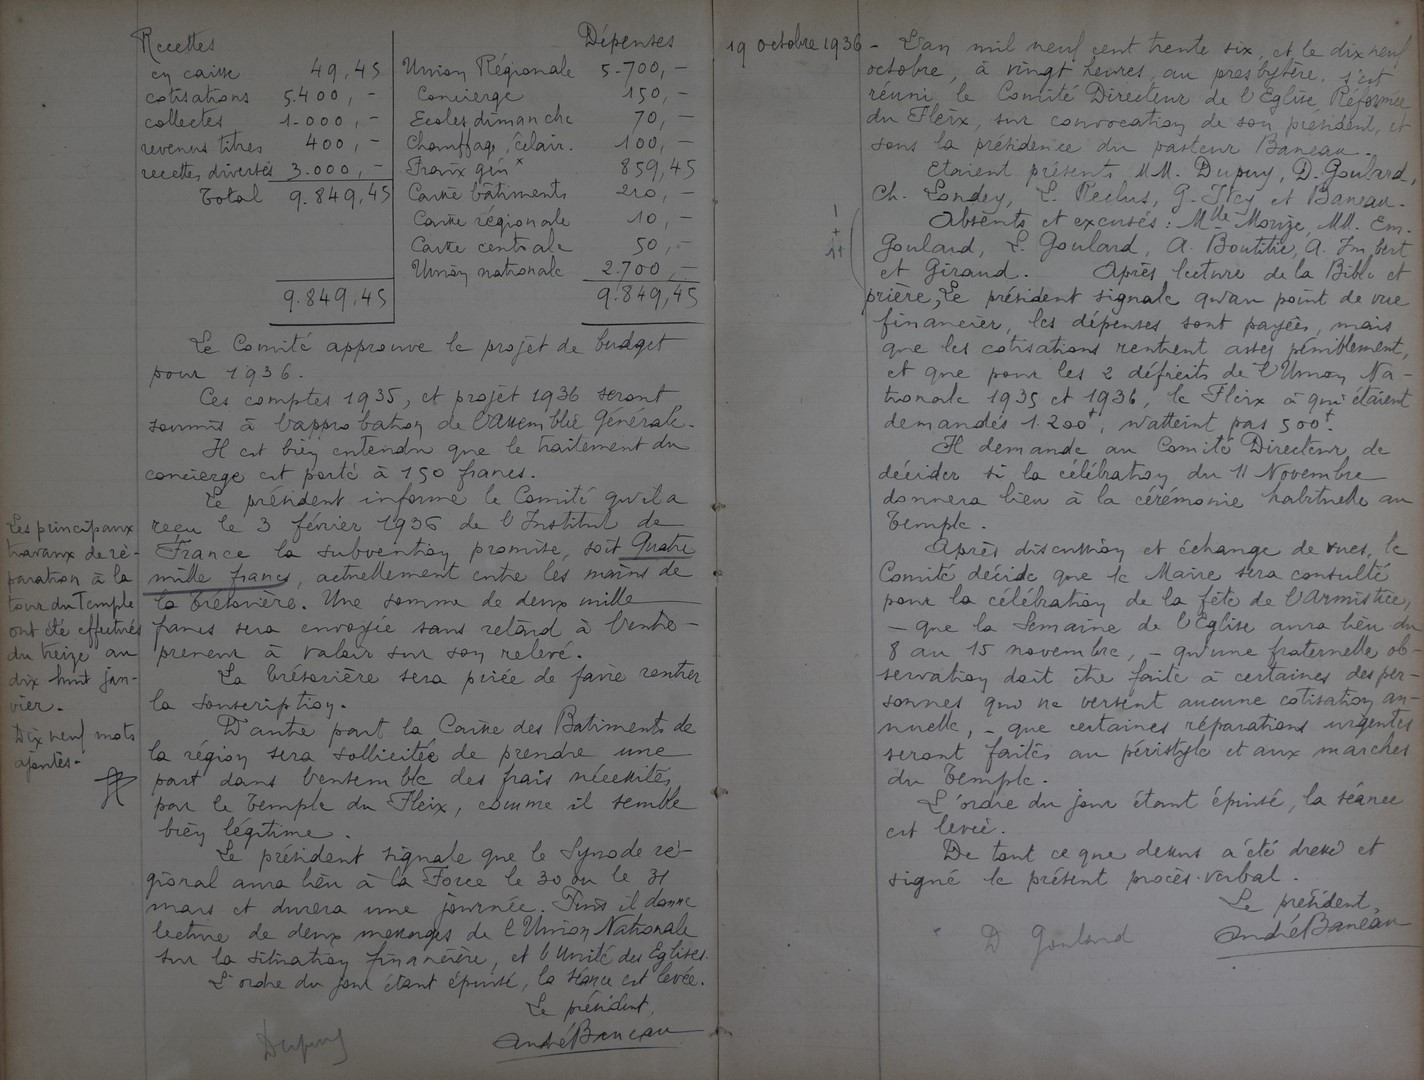 Recettes
en caisse 49,45
cotisations 5.400,-
collectes 1.000,-
revenus titres 400,-
recettes diverses 3.000,-
Total 9.849,45
9.849,45
Dépenses
Union Régionale 5.700,-
Concierge 150,-
Ecoles dimanche 70,-
Chauffage, éclair. 100,-
Fraix gén^x 859,45
Caisse bâtiments 210,-
Caisse régionale 10,-
Caisse centrale 50,-
Union nationale 2.700,-
9.849,45
Le Comité approuve le projet de budget
pour 1936.
Ces comptes 1935, et projet 1936 seront
soumis à l'approbation de l'assemblée Générale.
Il est bien entendu que le traitement du
concierge est porté à 150 francs.
Le président informe le Comité qu'il a
reçu le 3 février 1936 de l'Institut de
France la subvention promise, soit Quatre
mille francs, actuellement entre les mains de
la trésorière. Une somme de deux mille
francs sera envoyée sans retard à l'entre-
preneur à valoir sur son relevé.
La trésorière sera priée de faire rentrer
la souscription.
D'autre part la Caisse des Batiments de
la région sera sollicitée de prendre une
part dans l'ensemble des frais nécessités
par le Temple du Fleix, comme il semble
bien légitime.
Le président signale que le Synode ré-
gional aura lieu à la Force le 30 ou le 31
mars et durera une journée. Puis il donne
lecture de deux messages de l'Union Nationale
sur la situation financière, et l'Unité des Eglises.
L'ordre du jour étant épuisé, la séance est levée.
Le président,
André Baneau
Dupuy
Les principaux
travaux de ré-
paration à la
tour du Temple
ont été effectués
du treize au
dix huit jan-
vier.
Dix neuf mots
ajoutés.
19 octobre 1936 - L'an mil neuf cent trente six, et le dix neuf
octobre, à vingt heures, au presbytère, s'est
réuni le Comité Directeur de l'Eglise Réformée
du Fleix, sur convocation de son président, et
sous la présidence du pasteur Baneau.
Etaient présents MM. Dupuy, D. Goulard,
Ch. Londey, L. Reclus, G. Itey et Baneau.
Absents et excusés : Mlle Morize, MM. Em.
Goulard, L. Goulard, A. Boutitie, A. Imbert
et Giraud. Après lecture de la Bible et
prière, Le président signale qu'au point de vue
financier, les dépenses sont payées, mais
que les cotisations rentrent assez péniblement,
et que pour les 2 déficits de l'Union Na-
tionale 1935 et 1936, le Fleix à qui étaient
demandés 1.200f, n'atteint pas 500f.
Il demande au Comité Directeur de
décider si la célébration du 11 Novembre
donnera lieu à la cérémonie habituelle au
Temple.
Après discussion et échange de vues, le
Comité décide que le Maire sera consulté
pour la célébration de la fête de l'Armistice,
- que la Semaine de l'Eglise aura lieu du
8 au 15 novembre, - qu'une fraternelle ob-
servation doit être faite à certaines des per-
sonnes qui ne versent aucune cotisation an-
nuelle, - que certaines réparations urgentes
seront faites au péristyle et aux marches
du Temple.
L'ordre du jour étant épuisé, la séance
est levée.
De tout ce que dessus a été dressé et
signé le présent procès-verbal.
Le président,
André Baneau
D Goulard